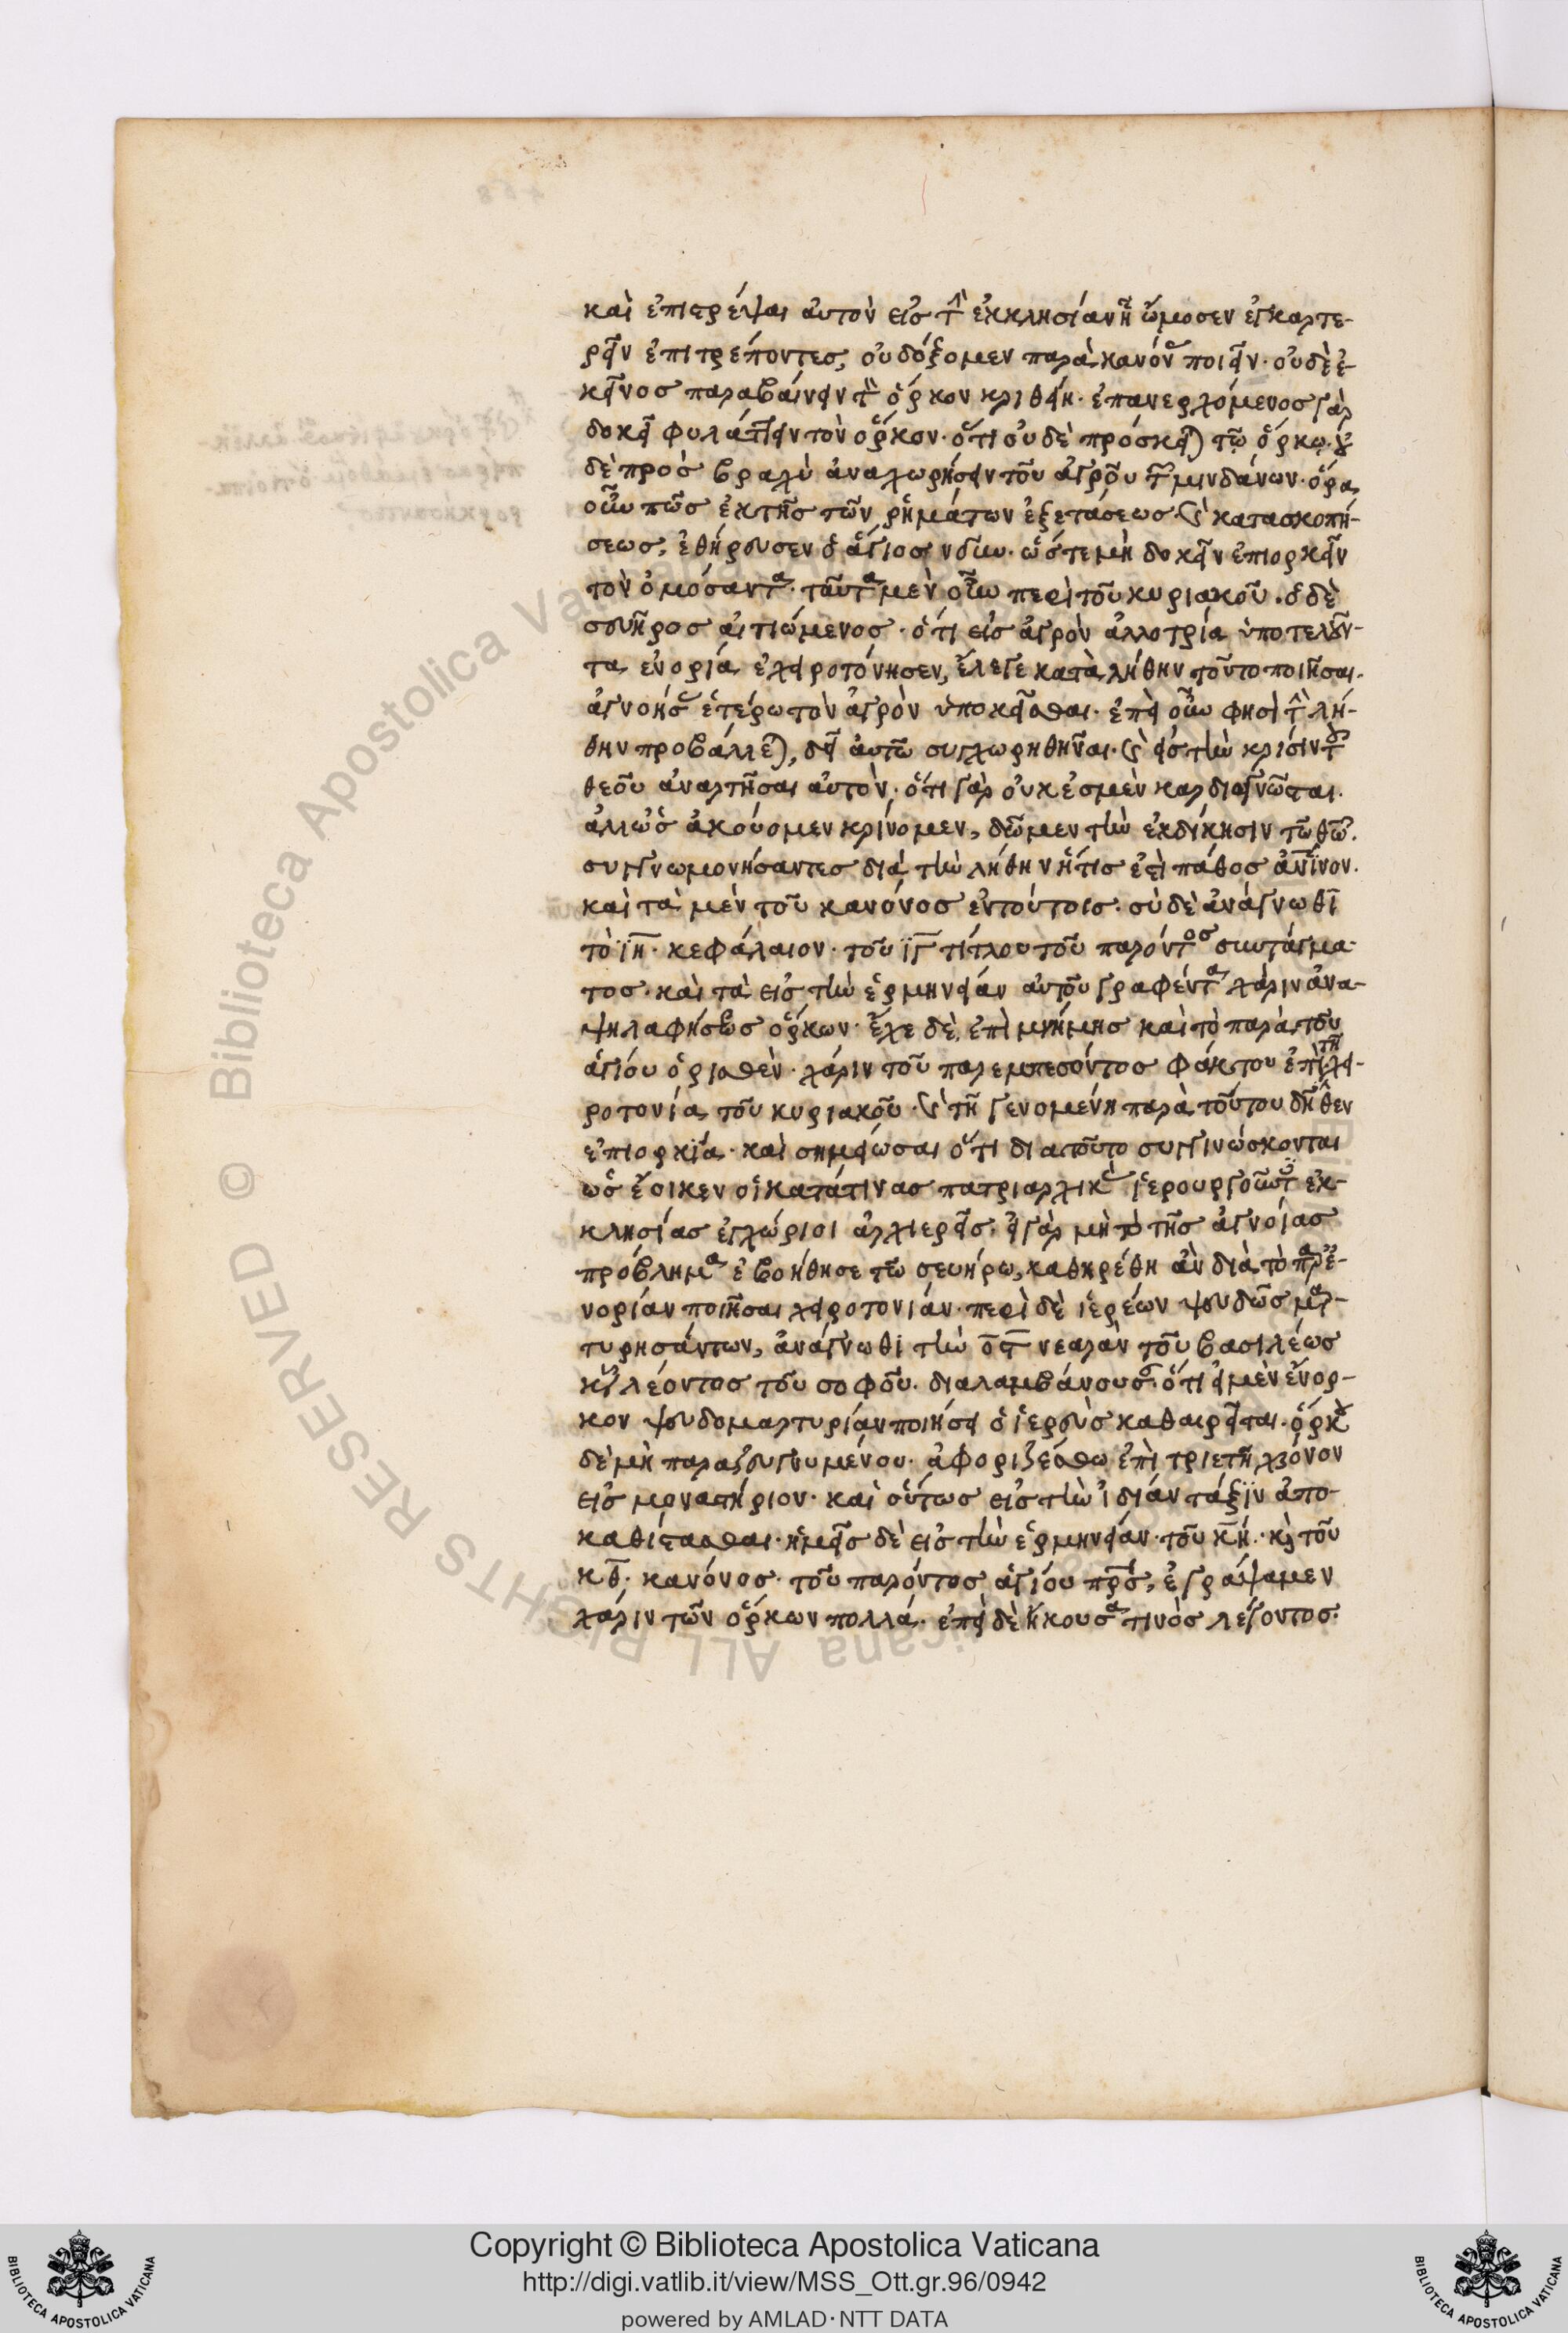 καὶ ἐπιτρέψαι αὐτὸν εἰς τὴν ἐκκλησίαν ἧ ὤμοσεν ἐγκαρτε-
ρεῖν ἐπιτρέποντες, οὐ δόξομεν παρὰ κανόνας ποιεῖν· οὐδὲ ἐ-
κεῖνος παραβαίνειν τὸν ὅρκον κριθείη· ἐπανερχόμενος γὰρ
δοκεῖ φυλάττειν τὸν ὅρκον· ὅτι οὐδὲ πρόσκειται τῷ ὅρκῳ. οὐ
δὲ πρὸς βραχὺ ἀναχωρήσειν τοῦ ἀγροῦ τῶν μινδάνων· ὅρα
οὖν πῶς ἐκ τῆς τῶν ῥημάτων ἐξετάσεως καὶ κατασκοπή-
σεως, ἐθήρευσεν ὁ ἅγιος νῦν· ὥστε μὴ δοκεῖν ἐπιορκεῖν
τὸν ὀμόσαντα· ταῦτα μὲν οὖν περὶ τοῦ κυριακοῦ. ὁ δὲ
σευῆρος αἰτιώμενος· ὅτι εἰς ἀγρὸν ἀλλοτρία ὑποτελοῦν-
τα ἐνορία ἐχειροτόνησεν, ἔλεγε κατὰ λήθην τοῦτο ποιῆσαι.
ἀγνοήσας ἑτέρω τὸν ἀγρὸν ὑποκεῖσθαι· ἐπεὶ οὖν φησὶ τὴν λή-
θην προβάλλεται, δεῖ αὐτῶ συγχωρηθῆναι· καὶ εἰς τὴν κρίσιν τοῦ
θεοῦ ἀναρτῆσαι αὐτὸν· ὅτι γὰρ οὐκ ἐσμὲν καρδιογνῶσται.
ἀλλ' ὡς ἀκούομεν κρίνομεν, δῶμεν τὴν ἐκδίκησιν τῶ θῶ.
συγγνωμονήσαντες διὰ τὴν λήθην ἥτις ἐστὶ πάθος ἀνϊνον.
καὶ τὰ μὲν τοῦ κανόνος ἐν τούτοις· σὺ δὲ ἀνάγνωθι
τὸ ιη· κεφάλαιον· τοῦ ιγ τίτλου τοῦ παρόντος συντάγμα-
τος· καὶ τὰ εἰς τὴν ἑρμηνείαν αὐτοῦ γραφέντα χάριν ἀνα-
ψηλαφήσεως ὅρκων· ἔχε δὲ ἐπὶ μνήμης καὶ τὸ παρὰ τοῦ
ἁγίου ὁρισθὲν· χάριν τοῦ παρεμπεσόντος φάκτου ἐπὶ τῆ χει-
ροτονία τοῦ κυριακοῦ· καὶ τῆ γενομένη παρὰ τούτου δῆθεν
ἐπιορκία· καὶ σημείωσαι ὅτι διατοῦτο συγγινώσκονται
ὡς ἔοικεν οἱ κατάτινας πατριαρχικὰς ἱερουργοῦντες ἐκ-
κλησίας ἐγχώριοι ἀρχιερεῖς· εἰ γὰρ μὴ τὸ τῆς ἀγνοίας
πρόβλημα ἐβοήθησε τῶ σευήρω, καθηρέθη ἂν διὰ τὸ παρ' ἐ-
νορίαν ποιῆσαι χειροτονίαν· περὶ δὲ ἱερέων ψευδῶς μαρ-
τυρησάντων, ἀνάγνωθι τὴν οϛ νεαρὰν τοῦ βασιλέως
κυροῦ λέοντος τοῦ σοφοῦ. διαλαμβάνουσαν· ὅτι εἰ μὲν ἔνορ-
κον ψευδομαρτυρίαν ποιήσει ὁ ἱερεὺς καθαιρεῖται· ὅρκου
δὲ μὴ παραζευγνυμένου· ἀφοριζέσθω ἐπὶ τριετῆ χρόνον
εἰς μοναστήριον· καὶ οὕτως εἰς τὴν ἰδίαν τάξιν ἀπο-
καθίστασθαι· ἡμεῖς δὲ εἰς τὴν ἑρμηνείαν· τοῦ κη· καὶ τοῦ
κθ· κανόνος· τοῦ παρόντος ἁγίου πρς, ἐγράψαμεν
χάριν τῶν ὅρκων πολλά· ἐπεὶ δὲ ἤκουσα τινὸς λέγοντος·
Copyright © Biblioteca Apostolica Vaticana
http://digi.vatlib.it/view/MSS_Ott.gr.96/0942
powered by AMLAD·NTT DATA